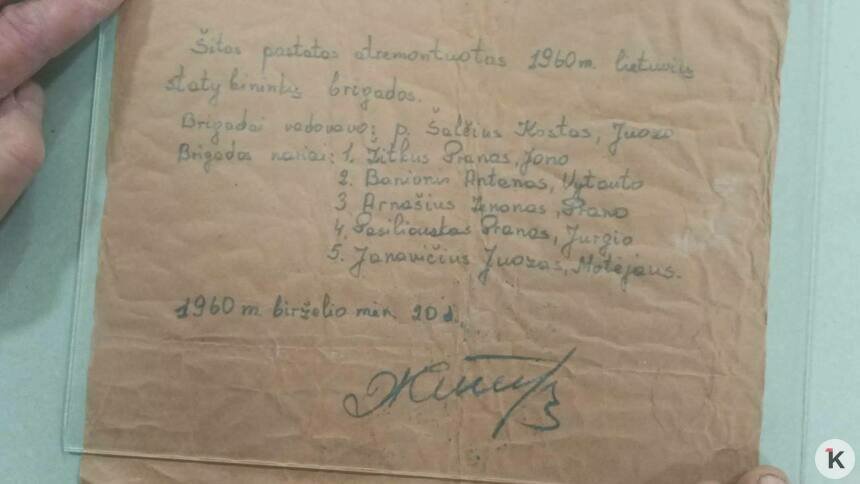 Šitas pastatas atremontuotas 1960 m. lietuvių
statybininkų brigados.
Brigadai vadovavo: p. Šalčius Kostas, Juozo
Brigados nariai: 1. Žitkus Pranas, Jono
2. Banionis Antanas, Vytauto
3 Arnašius Zenonas, Prano
4. Pasiliauskas Pranas, Jurgio
5. Janavičius Juozas, Motiejaus.
1960 m. birželio mėn. 20 d.
K